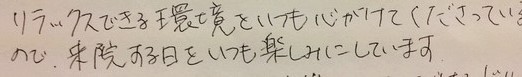 リラックスできる環境をいつも心がけてくださっている
ので、来院する日をいつも楽しみにしています